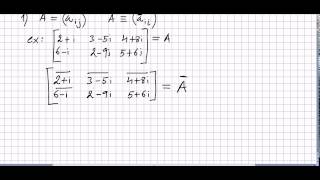 1) A = (a_ij)   Ā ≡ (ā_ij)
ex: [2+i 3-5i 4+8i
6-i 2-9i 5+6i] = A
[2̅+̅i̅ 3̅-̅5̅i̅ 4̅+̅8̅i̅
6̅-̅i̅ 2-9i 5+6i] = Ā